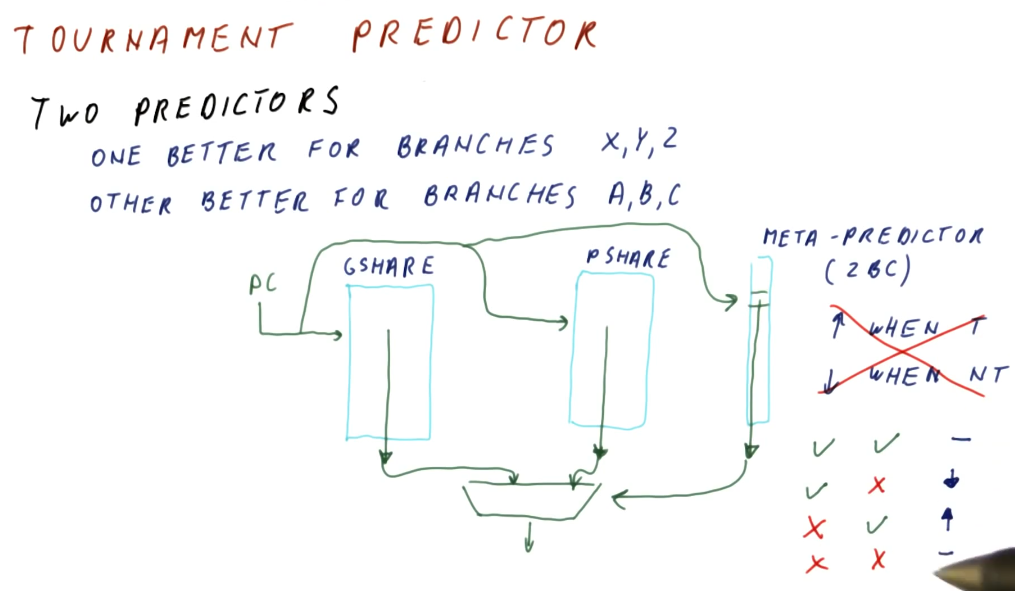 TOURNAMENT PREDICTOR
TWO PREDICTORS
ONE BETTER FOR BRANCHES X,Y,Z
OTHER BETTER FOR BRANCHES A,B,C
PC
GSHARE
PSHARE
META-PREDICTOR
(2BC)
↑ WHEN T
↓ WHEN NT
✓ ✓ –
✓ X ↓
X ✓ ↑
X X –